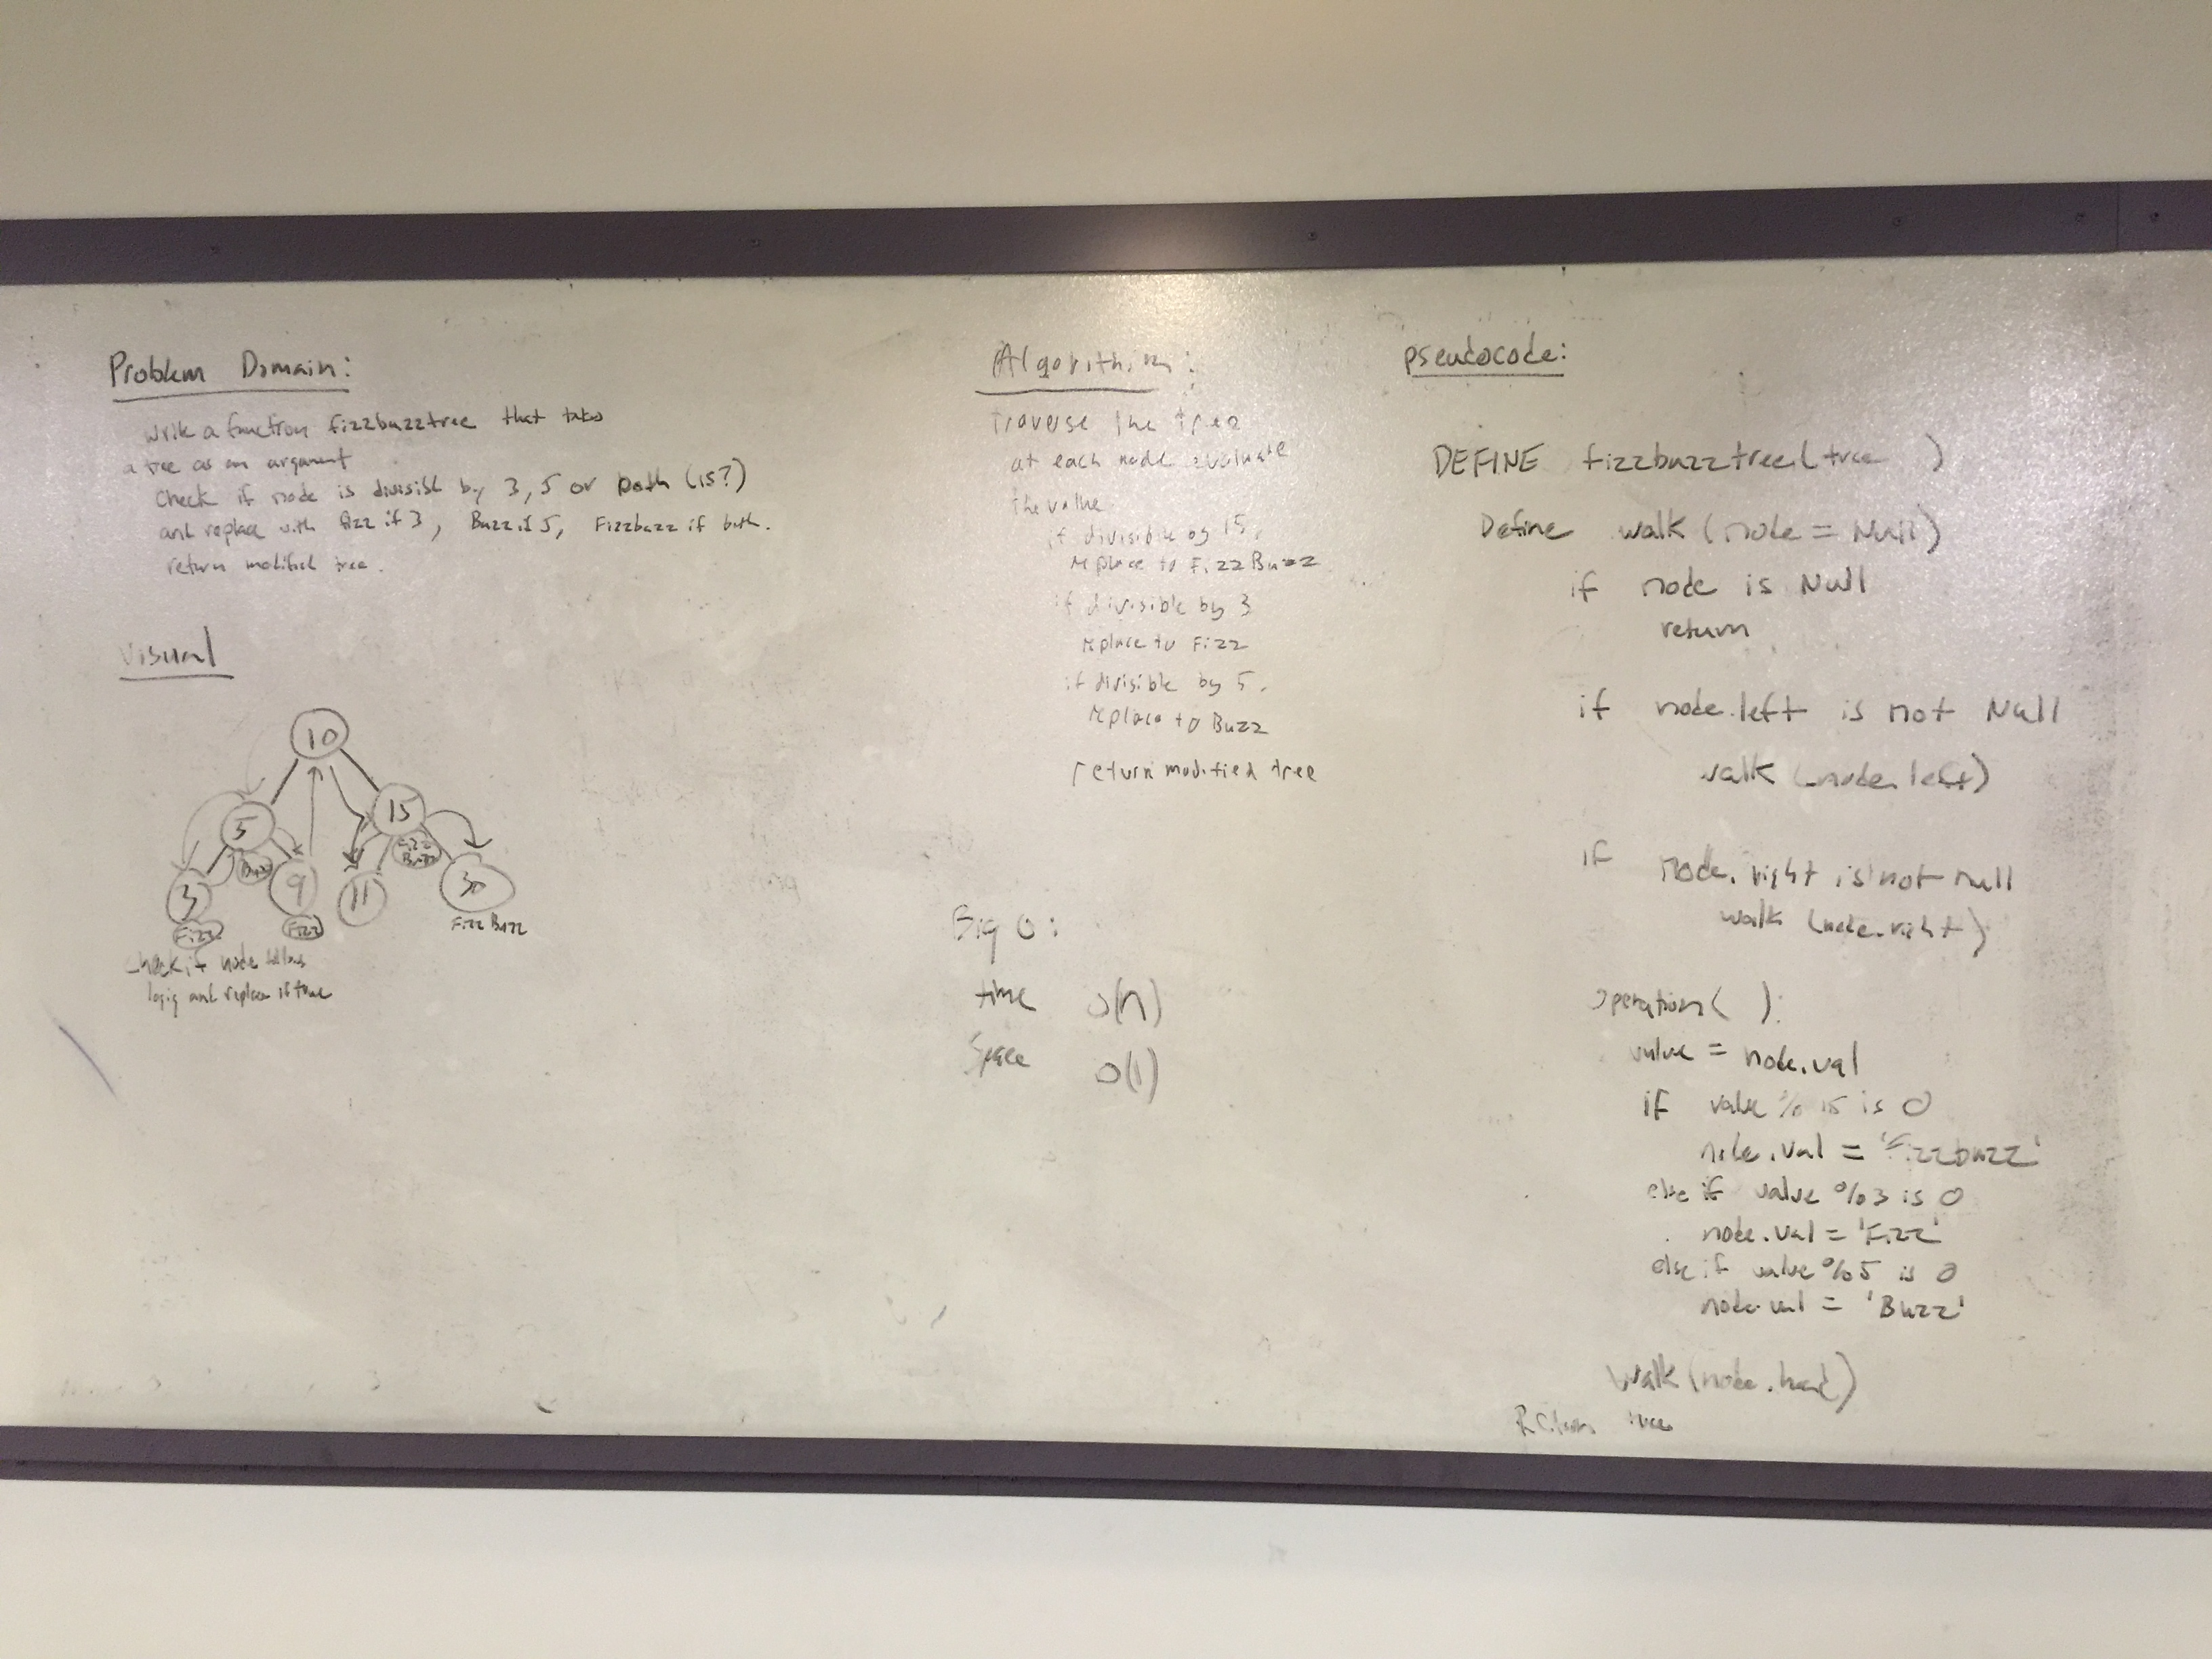 Problem Domain:
write a function fizzbuzztree that takes
a tree as an argument
check if node is divisibl by 3, 5 or both (15?)
and replace with fizz if 3, Buzz if 5, Fizzbuzz if both.
return modified tree.
Visual
10
5
15
Buzz
Fizz
Buzz
3
9
11
30
Fizz
Fizz
Fizz Buzz
check if node
logig and replace if true
Algorithim:
Traverse the tree
at each node evaluate
the value
if divisible by 15,
replace to FizzBuzz
if divisible by 3
replace to Fizz
if divisible by 5,
replace to Buzz
return modified tree
Big O:
time O(n)
Space O(1)
pseudocode:
DEFINE fizzbuzztree(tree )
Define walk (node = Null)
if node is Null
return
if node.left is not Null
walk (node.left)
if node.right is not null
walk (node.right)
operation( ):
value = node.val
if value % 15 is 0
node.val = 'Fizzbuzz'
else if value %3 is 0
node.val = 'Fizz'
else if value %5 is 0
node.val = 'Buzz'
walk (node.head)
Return tree